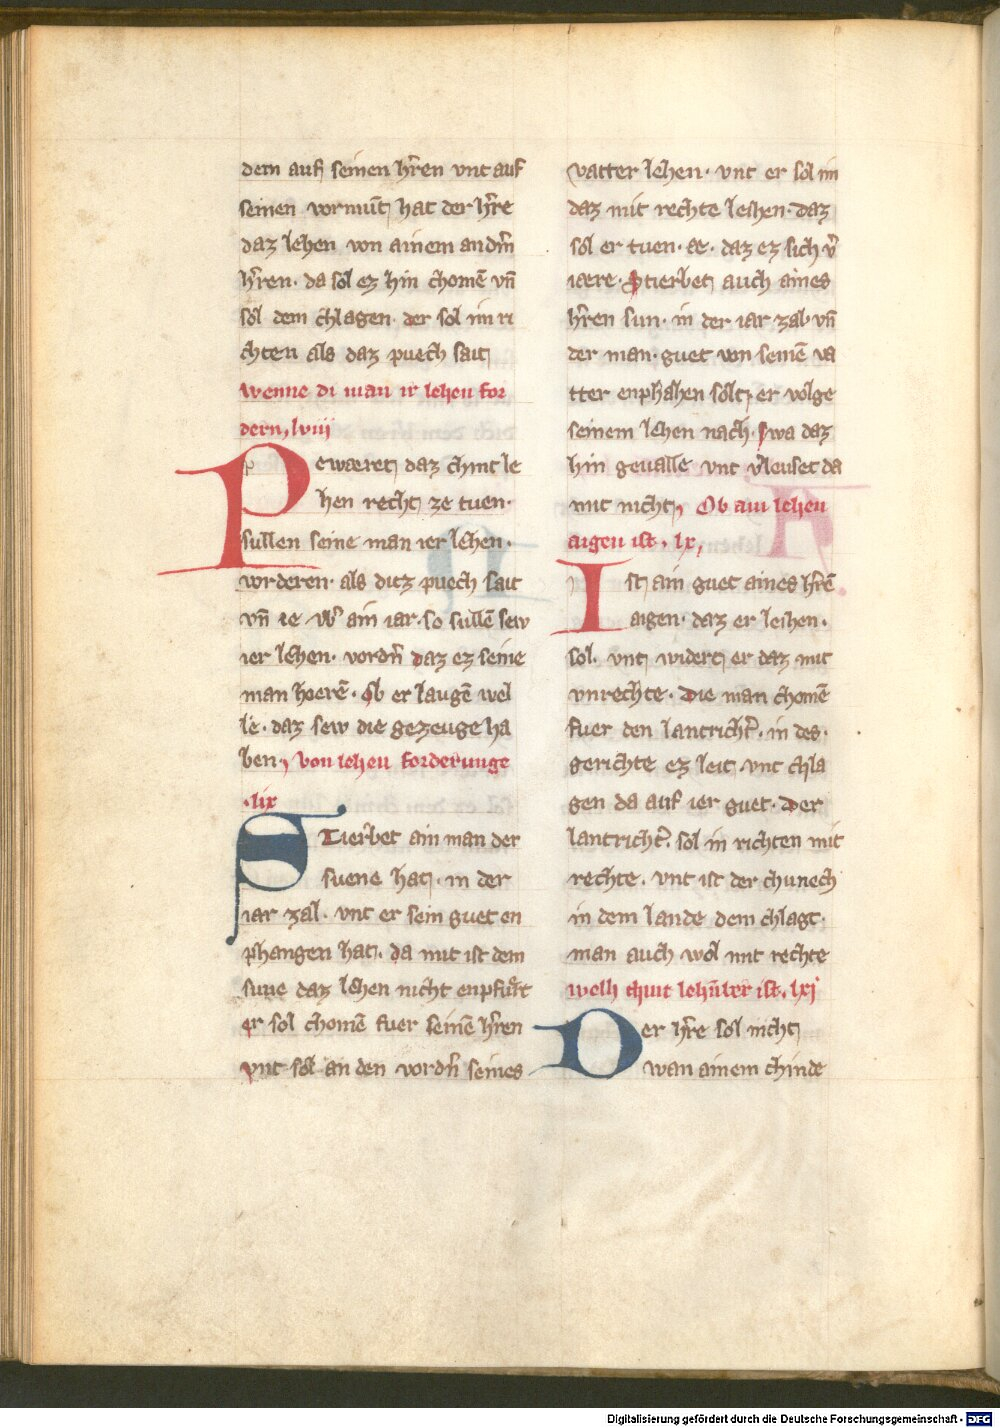 dem auf seinen hr̄en vnt auf
seinen vormūt hat der hr̄re
daz lehen von ainem andm̄
hr̄ren. da sol ez hin chomē vn̄
sol dem chlagen. der sol im ri
chten als daz puech sait
wenne di man ir lehen for
dern, lviij
Pewæret daz chint le
hen recht ze tuen.
sullen seine man ier lehen.
vorderen. als ditz puech sait
vn̄ ie vb̄ ain iar. so sullē sew
ier lehen. vordn̄ daz ez seine
man hoerē. Ob er laugē wel
le. daz sew die gezeuge ha
ben, von lehen forderunge
.lix
Stierbet ain man der
suene hat. in der
iar zal. vnt er sein guet en
phangen hat. da mit ist dem
sune daz lehen nicht enpfūrt
er sol chomē fuer seinē hr̄ren
vnt sol an den vordn̄ seines
vatter lehen. vnt er sol im
daz mit rechte leihen. daz
sol er tuen. æ. daz ez sich v̄
iære. Stierbet auch aines
hr̄ren sun. in der iar zal. vn̄
der man. guet von seinē va
tter enphahen solt, er volge
seinem lehen nach. swa daz
hin geualle vnt v̄leuset da
mit nicht, Ob ain lehen
aigen ist. lx,
Ist ain guet aines hr̄rē
aigen. daz er leihen.
sol. vnt widert er daz mit
vnrechte. Die man chomē
fuer den lantrichtr̄. in des.
gerichte ez leit vnt chla
gen da auf ier guet. Der
lantrichtr̄. sol in richten mit
rechte. vnt ist der chunech
in dem lande dem chlagt.
man auch wol mit rechte
welh chint lehn̄ber ist. lxj
Der hr̄re sol nicht
wan ainem chinde
Digitalisierung gefördert durch die Deutsche Forschungsgemeinschaft - DFG